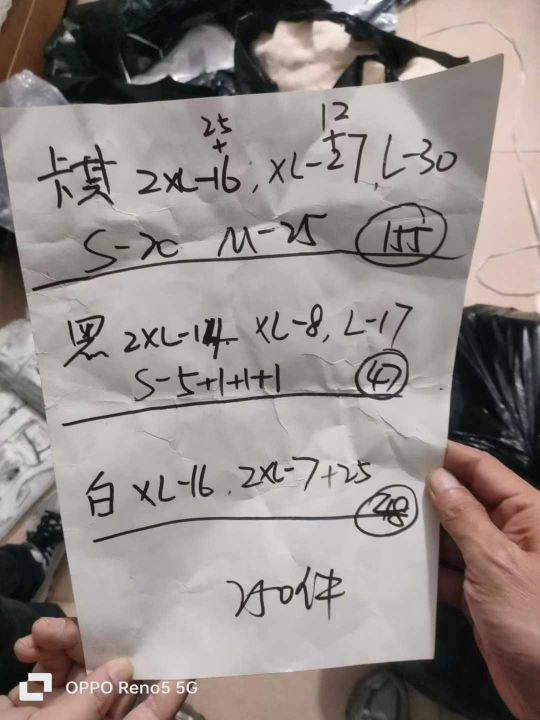 25 12
+ +
卡其 2XL-16, XL-27, L-30
S-20 M-25 155
黑 2XL-14 XL-8, L-17
S-5+1+1+1 47
白 XL-16, 2XL-7+25
48
250件
OPPO Reno5 5G